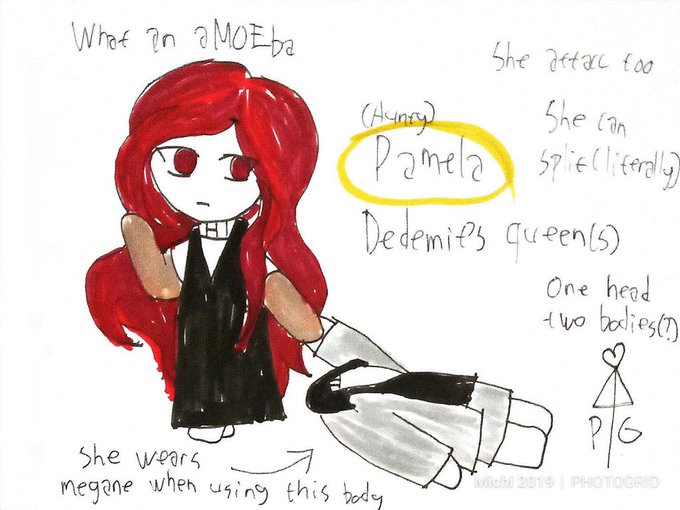 What an aMOEba
She attacc too
(Aunty)
Pamela
She can
split (literally)
Dedemit's queen(s)
One head
two bodies(?)
P G
She wears
megane when using this body
Michi 2019 | PHOTOGRID